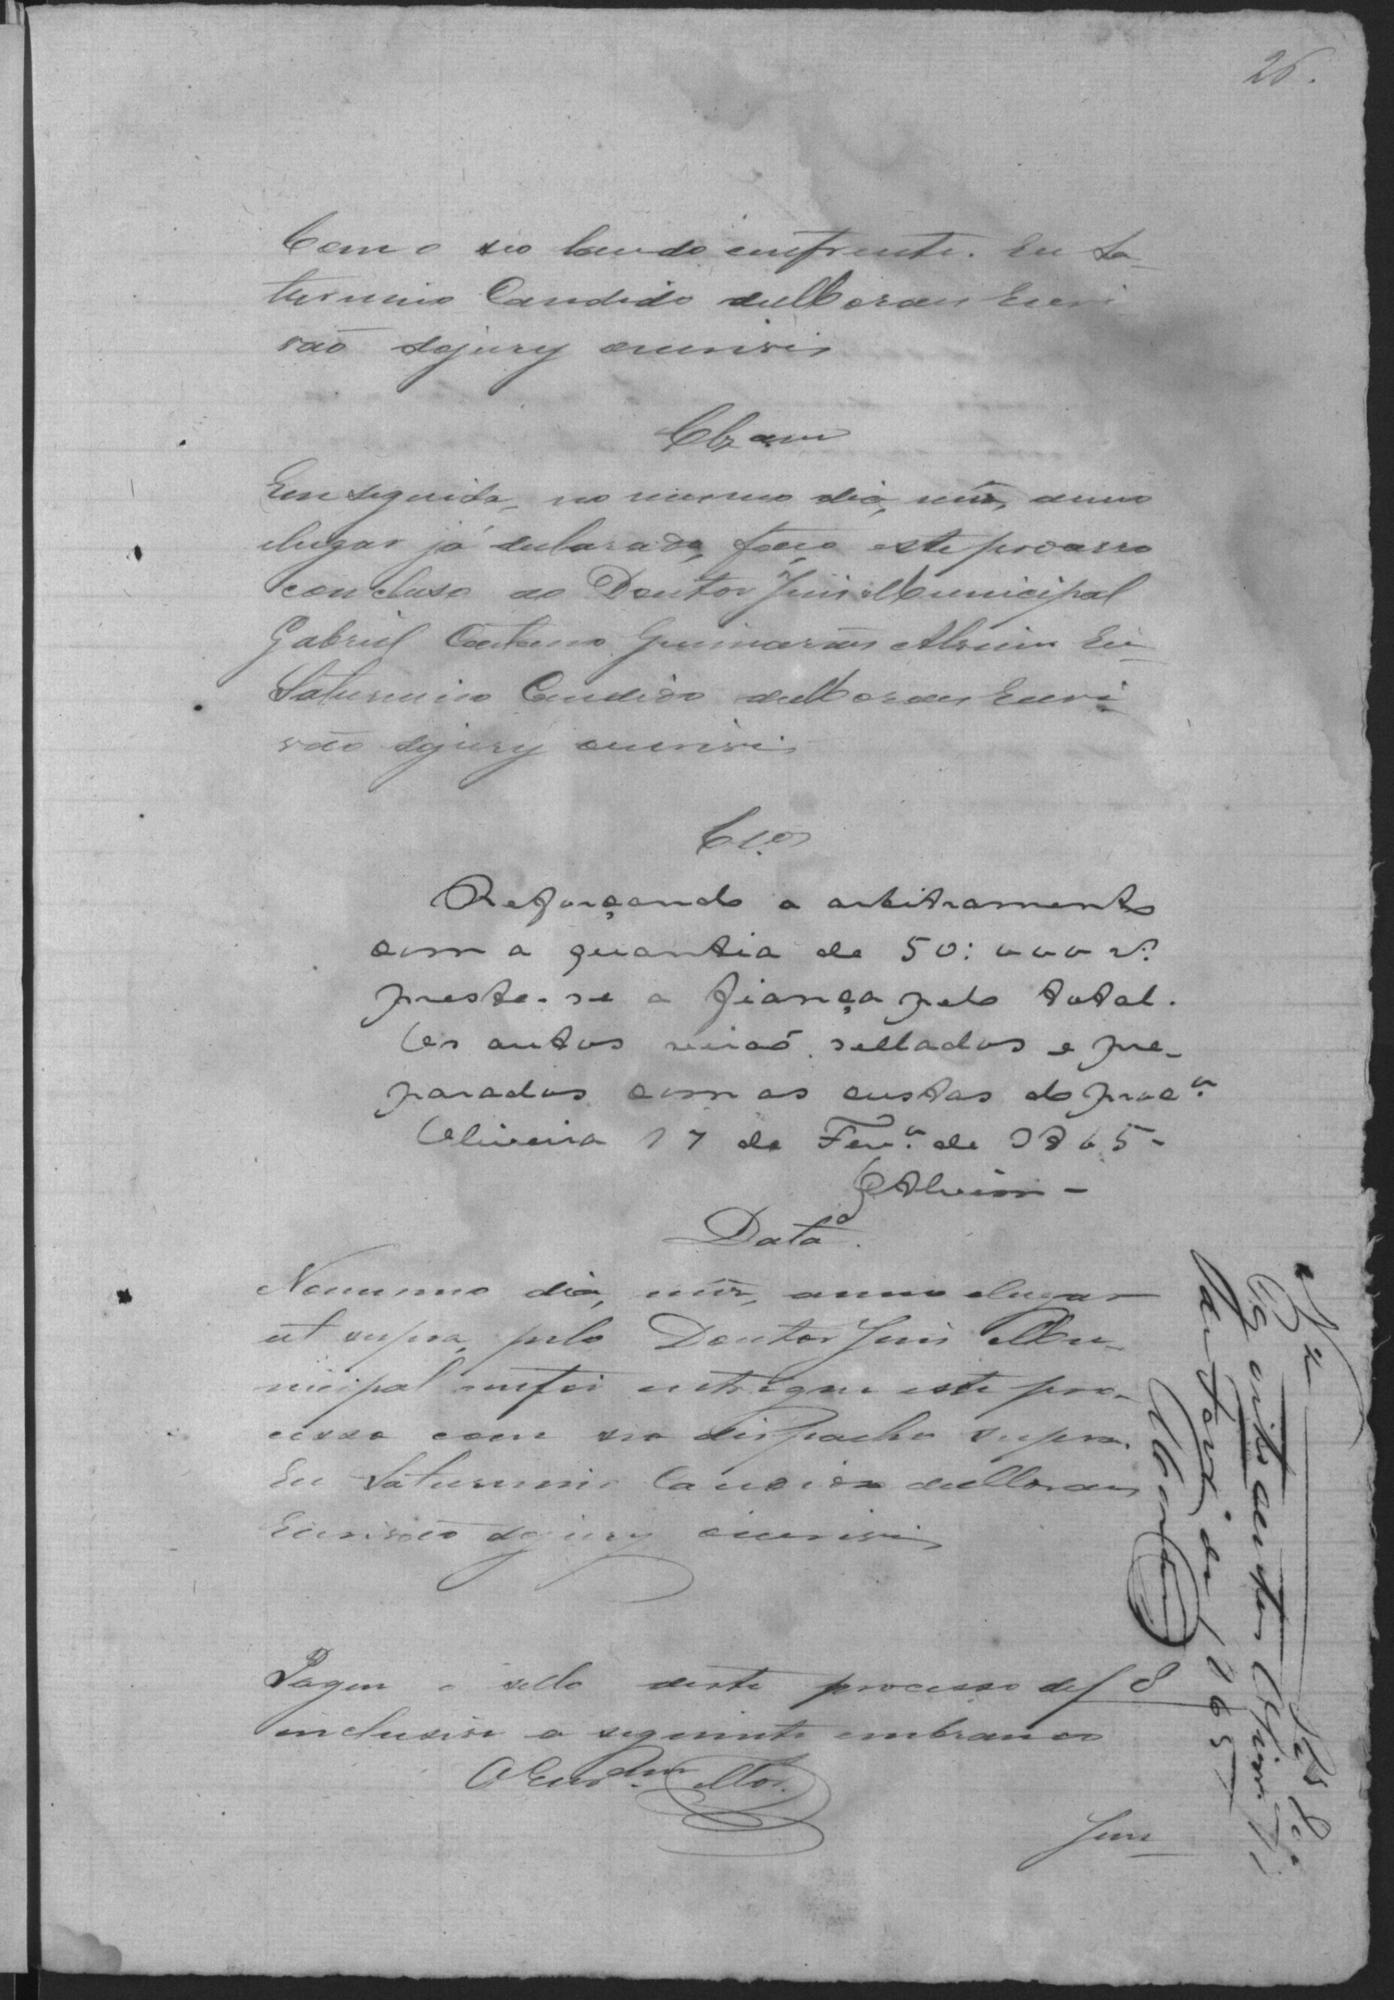 26.
Com o seo laudo emfrente. Eu Sa-
turnino Candido de Moraes Escri
vão do jury escrevi
Clzam
Em seguida, no mesmo dia, mês, anno
e lugar já declarado, faço este processo
concluso ao Doutor Juis Municipal
Gabriel Caetano Guimarães Alvim Eu
Saturnino Candido de Moraes Escri
vão do jury escrevi
Clos
Reforçando o arbitramento
com a quantia de 50:000 rs.
preste-se a fiança pelo total.
Os autos sejaõ sellados e pre-
parados com as custas do proco.
Oliveira 17 de Fevro. de 1865-
GCAlvim-
Data
No mesmo dia, mês, anno e lugar
ut supra, pelo Doutor Juis Mu-
nicipal me foi entregue este pro-
cesso com seo despacho supra.
Eu Saturnino Candido de Moraes
Escrivão do jury escrevi
Pagou o sello deste processo de f 8
inclusive o seguinte em branco
O Escrm. Mor.
Juis
Nº 2
Oliveira
de 1865